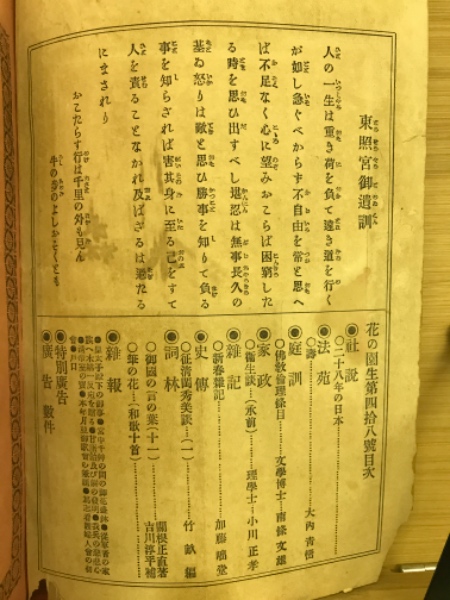 東照宮御遺訓
人の一生は重き荷を負て遠き道を行く
が如し急ぐべからず不自由を常と思へ
ば不足なく心に望みおこらば困窮した
る時を思ひ出すべし堪忍は無事長久の
基ゐ怒りは敵と思ひ勝事を知りて負る
事を知らざれば害其身に至る己をせて
人を責ることなかれ及ばざるは過たる
にまされり
おこたらず行は千里の外も見ん
牛の歩のよしおそくとも
花の園生第四拾八號目次
●社説
〇二十八年の日本
●法苑
大内青巒
●庭訓
〇佛敎倫理條目 文學博士 南條文雄
●家政
〇衞生談(承前) 理學士 小川正孝
●雜記
〇新春雜記 加藤
●史傳
〇征淸閨秀美談(一) 竹
●詞林
〇御國の言の葉(十一) 關根正直著 吉川淳平補
〇年の花(和歌十首)
●雜報
●特別廣告
●廣告數件